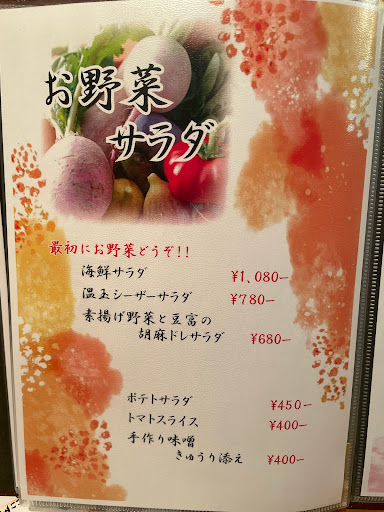 お野菜
サラダ
最初にお野菜どうぞ!!
海鮮サラダ ¥1,080-
温玉シーザーサラダ ¥780-
素揚げ野菜と豆富の
胡麻ドレサラダ ¥680-
ポテトサラダ ¥450-
トマトスライス ¥400-
手作り味噌
きゅうり添え ¥400-